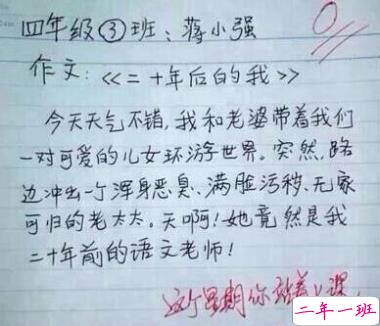 0
四年级③班：蒋小强
作文：<<二十年后的我>>
今天天气不错，我和老婆带着我们
一对可爱的儿女环游世界。突然，路
边冲出一个浑身恶臭、满脸污秽、无家
可归的老太太。天啊！她竟然是我
二十年前的语文老师！
这个星期你站着上课
二年一班